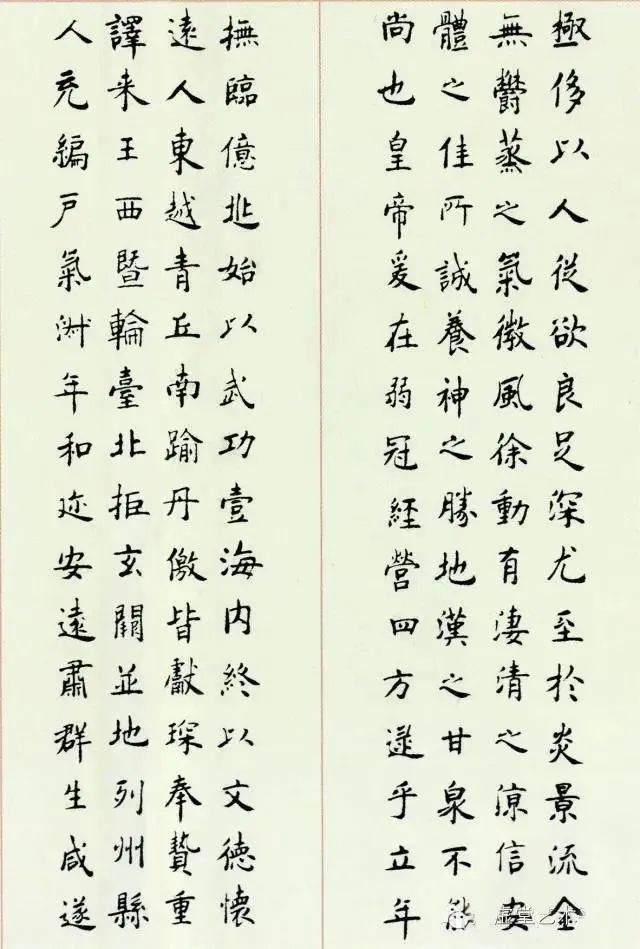 極侈以人從欲良足深尤至於炎景流金
無鬱蒸之氣微風徐動有淒清之涼信安
體之佳所誠養神之勝地漢之甘泉不能
尚也皇帝爰在弱冠經營四方逖乎立年
撫臨億兆始以武功壹海内終以文德懷
遠人東越青丘南踰丹儌皆獻琛奉贄重
譯来王西暨輪臺北拒玄闕並地列州縣
人充編戶氣淑年和迩安遠肅群生咸遂
虚堂艺术